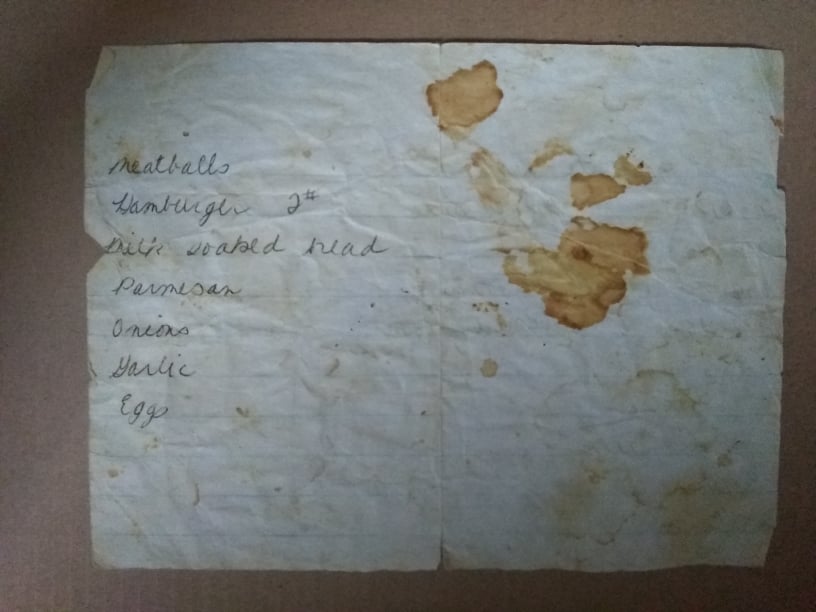 Meatballs
Hamburger 2#
Milk soaked bread
Parmesan
Onions
Garlic
Eggs